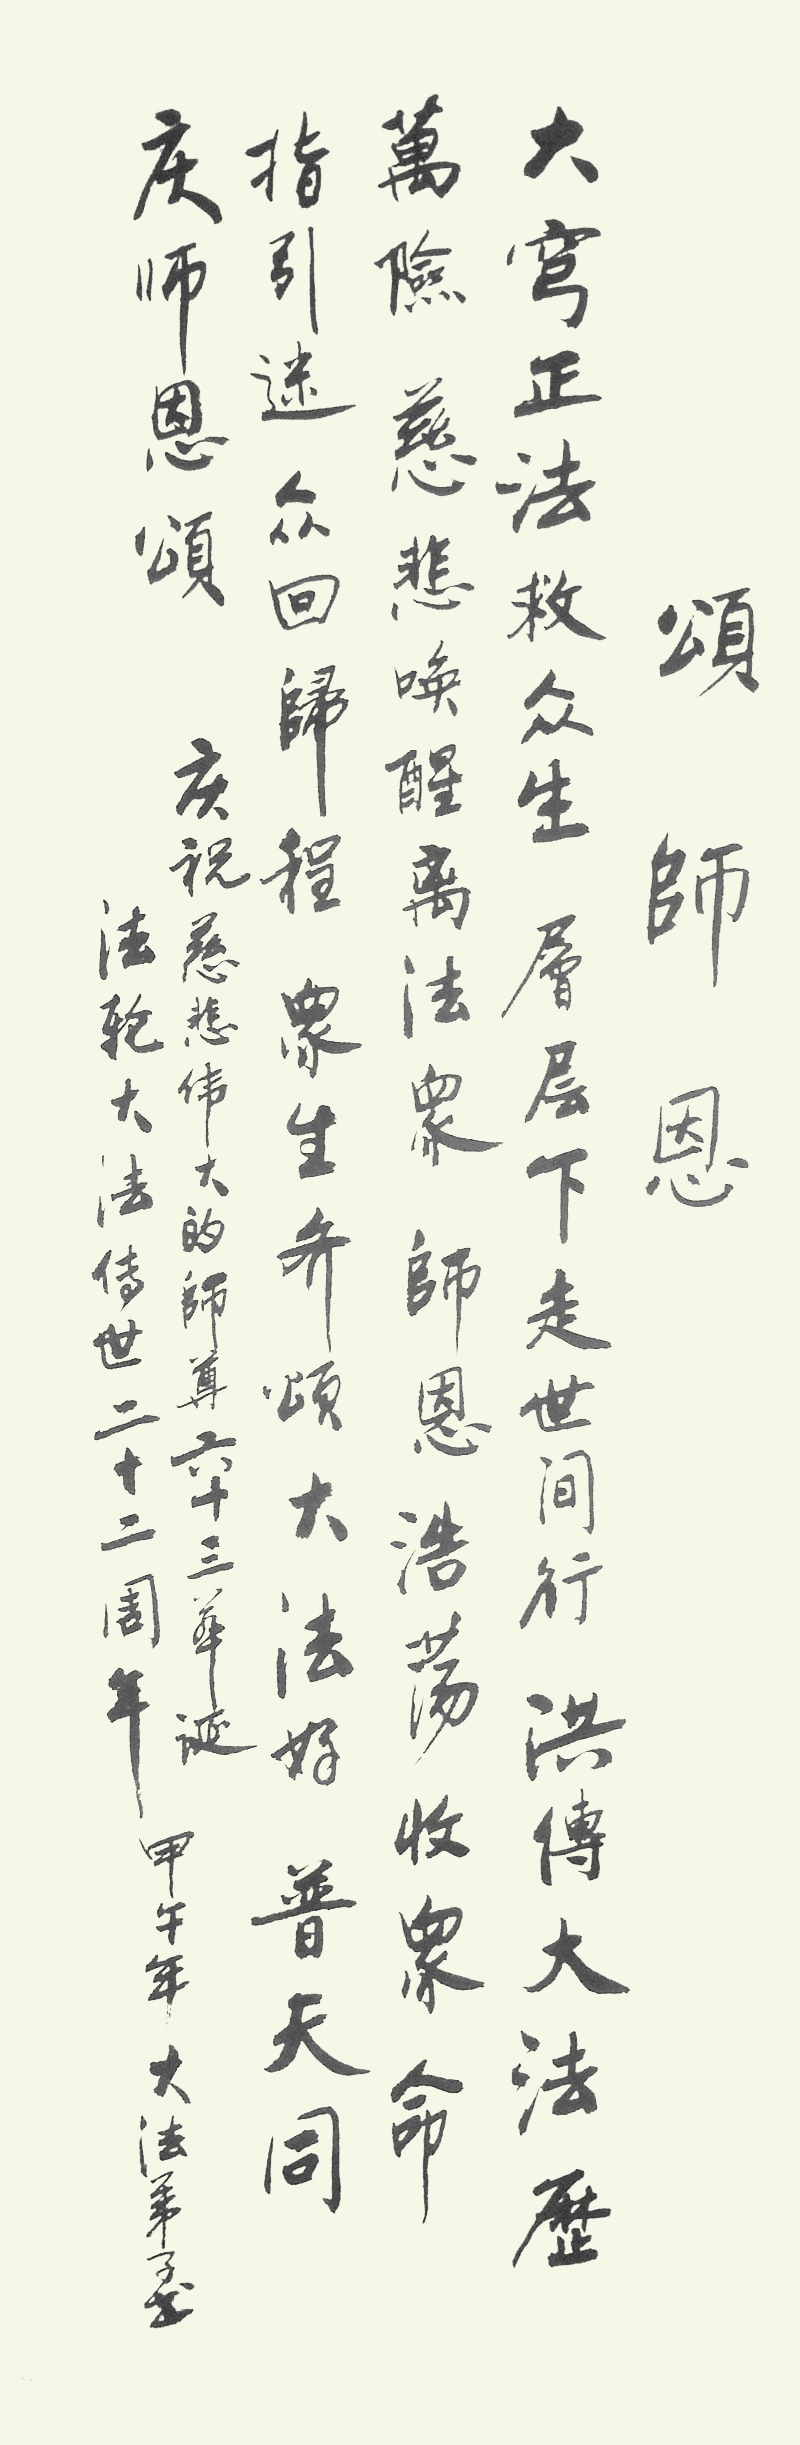 頌師恩
大穹正法救众生 層层下走世间行 洪傳大法歷
萬險 慈悲唤醒离法眾 師恩浩荡收眾命
指引迷众回歸程 眾生齐頌大法好 普天同
庆师恩頌
庆祝慈悲伟大的師尊六十三華诞
法轮大法传世二十二周年
甲午年 大法弟子书